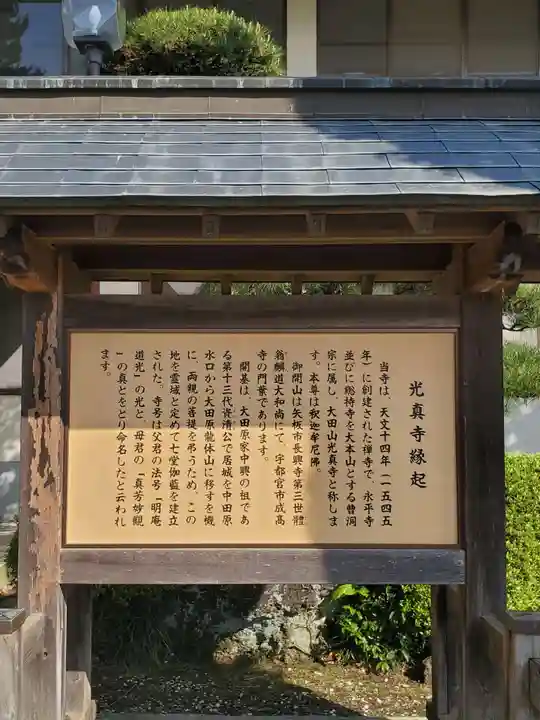 光真寺縁起
当寺は、天文十四年(一五四五
年)に創建された禅寺で、永平寺
並びに總持寺を大本山とする曹洞
宗に属し、大田山光真寺と称しま
す。本尊は釈迦牟尼佛。
御開山は矢板市長興寺第三世體
翁麟道大和尚にて、宇都宮市成高
寺の門葉であります。
開基は、大田原家中興の祖であ
る第十三代資清公で居城を中田原
水口から大田原龍体山に移すを機
に、両親の菩提を弔うため、この
地を霊域と定めて七堂伽藍を建立
された。寺号は父君の法号「明庵
道光」の光と、母君の「真芳妙観
」の真とをとり命名したと云われ
ます。